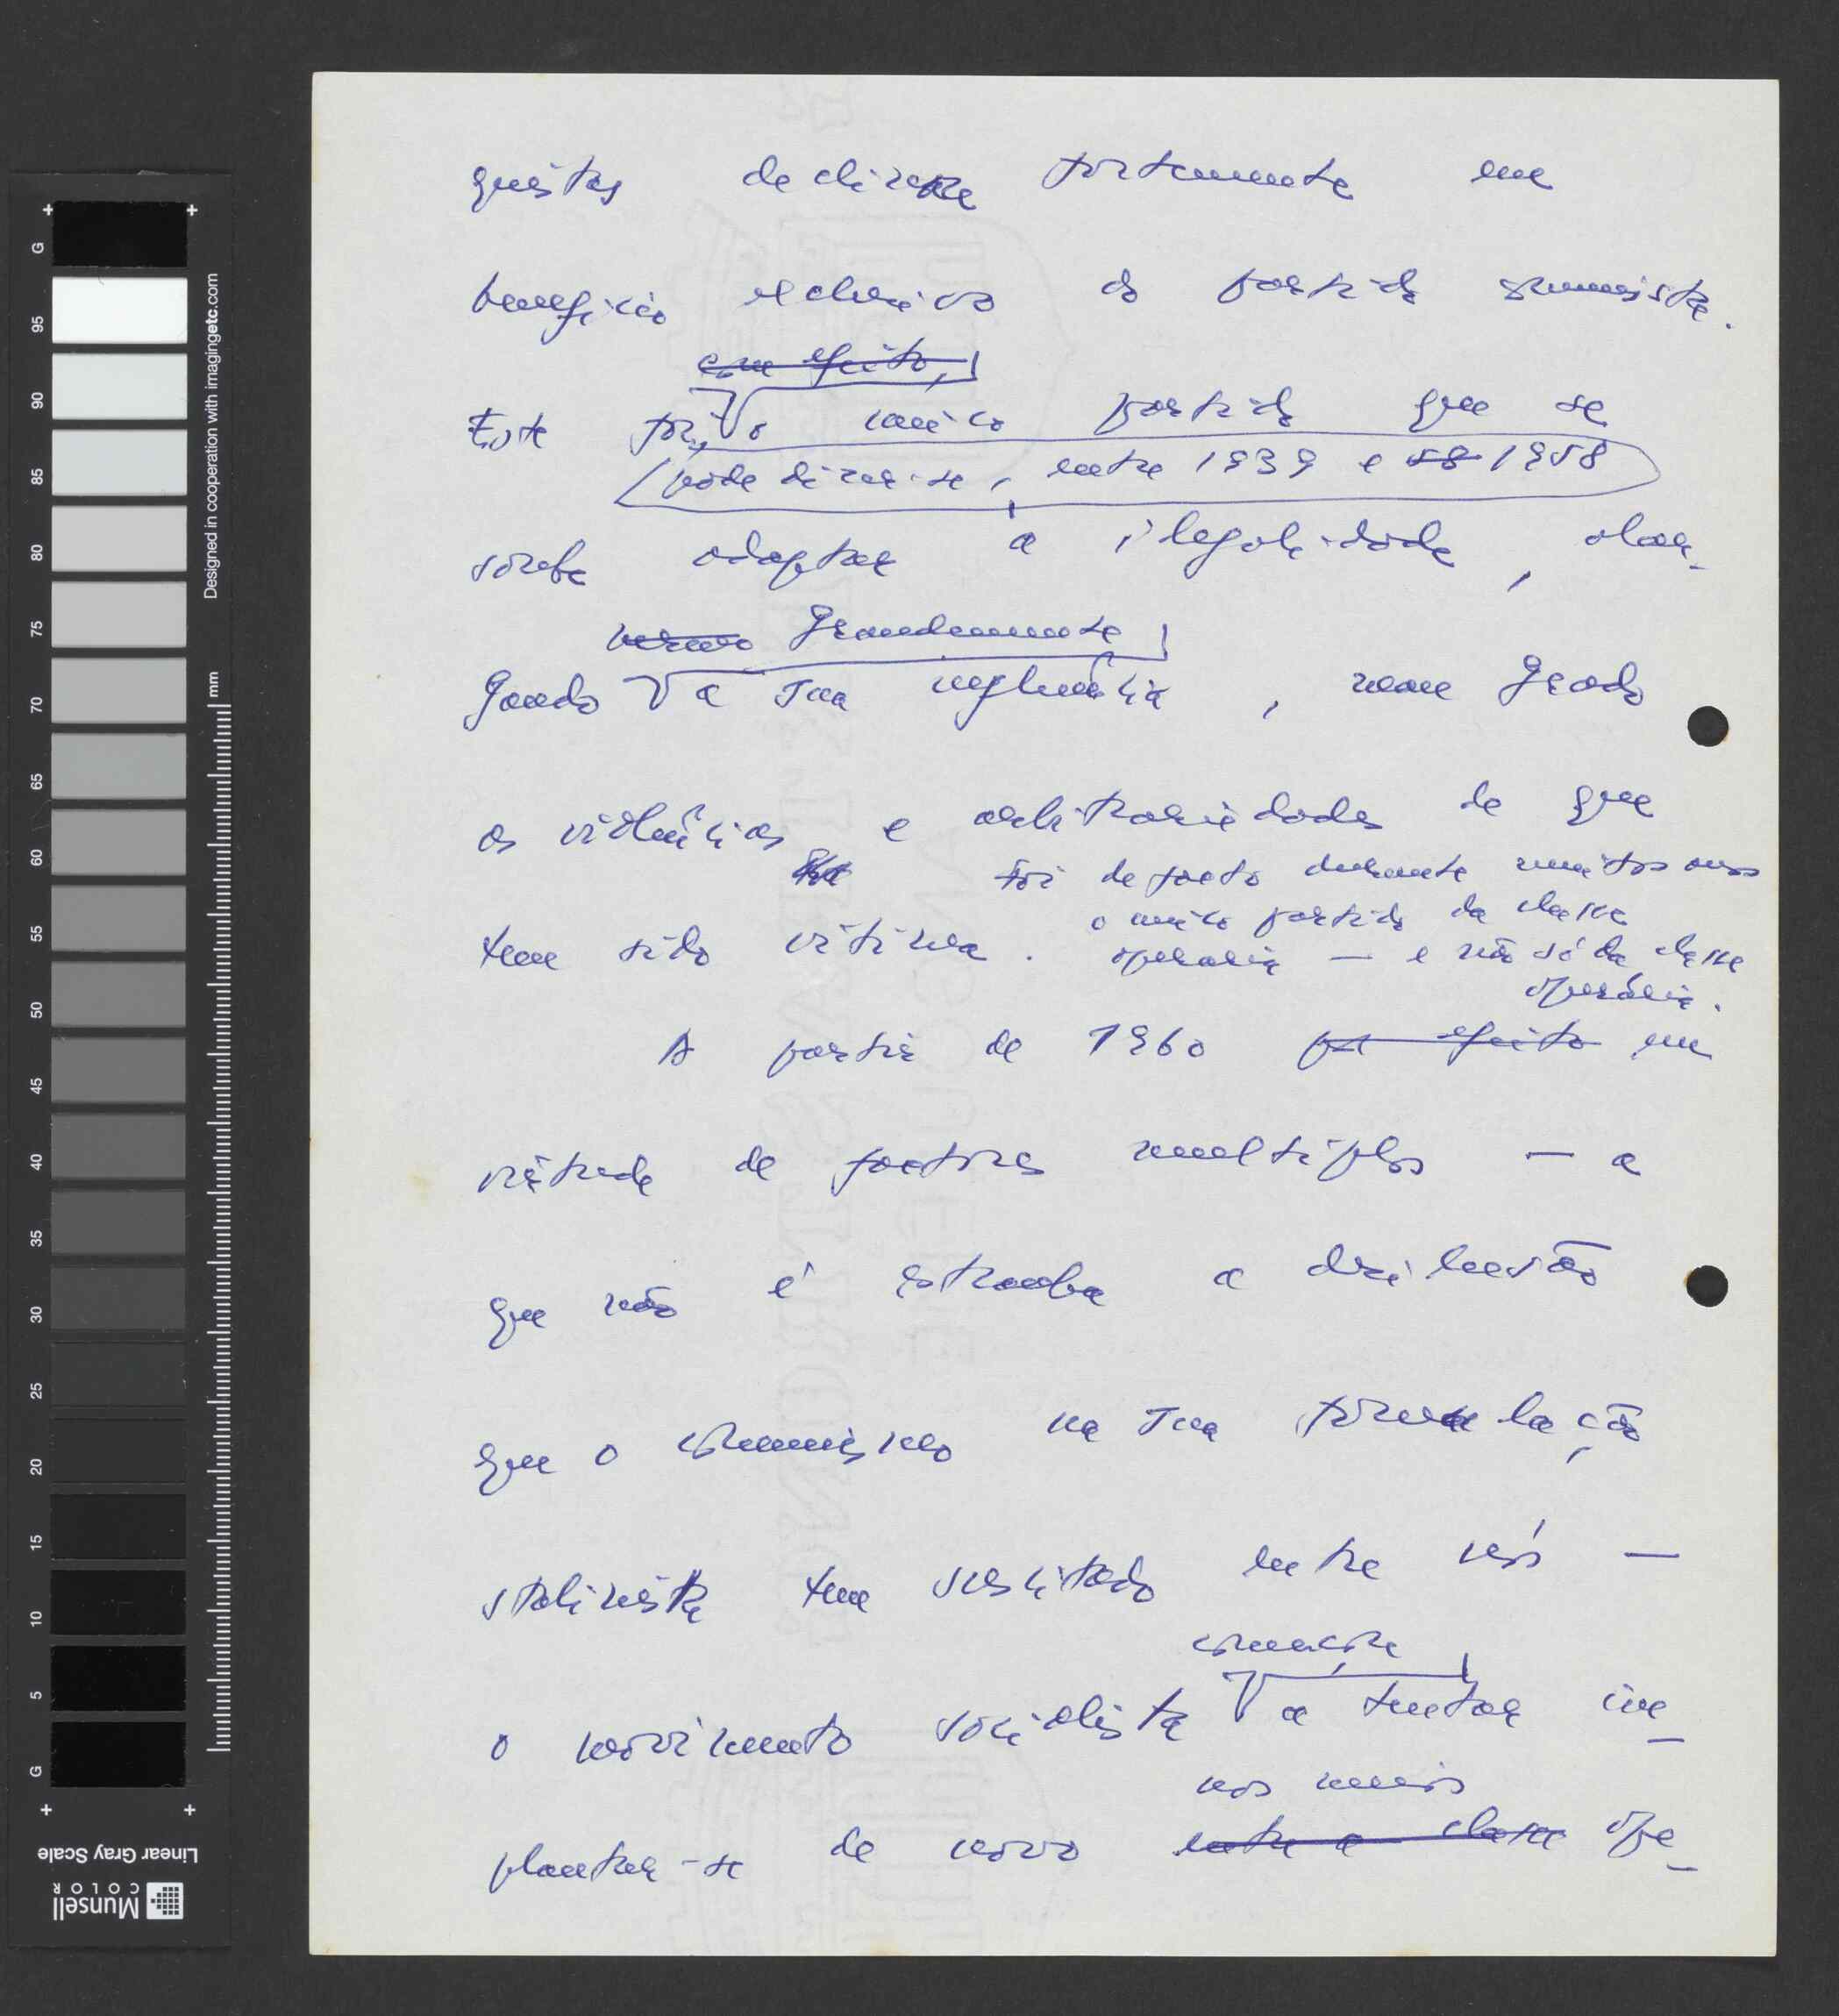 quistas declinou fortemente em
benefício exclusivo do partido comunista.
com efeito,
Este foi, o único partido que se
(pode dizer-se, entre 1939 e 58 1958
soube adaptar à ilegalidade, alar-
mesmo grandemente
gando a sua influência, mau grado
as violências e arbitrariedades de que
foi de facto durante muitos anos
o único partido da classe
tem sido vítima. operária — e não só da classe
operária.
A partir de 1960 por efeito em
virtude de factores multiplos — a
que não é estranha a desilusão
que o comunismo na sua formulação
stalinista tem suscitado entre nós —
começou
o movimento socialista a tentar im-
nos meios
plantar-se de novo entre a classe ope-
G 95 90 85 80 75 70 65 60 55 50 45 40 35 30 25 20 15 10 5 G
mm
Designed in cooperation with imagingetc.com
Linear Gray Scale
Munsell
COLOR